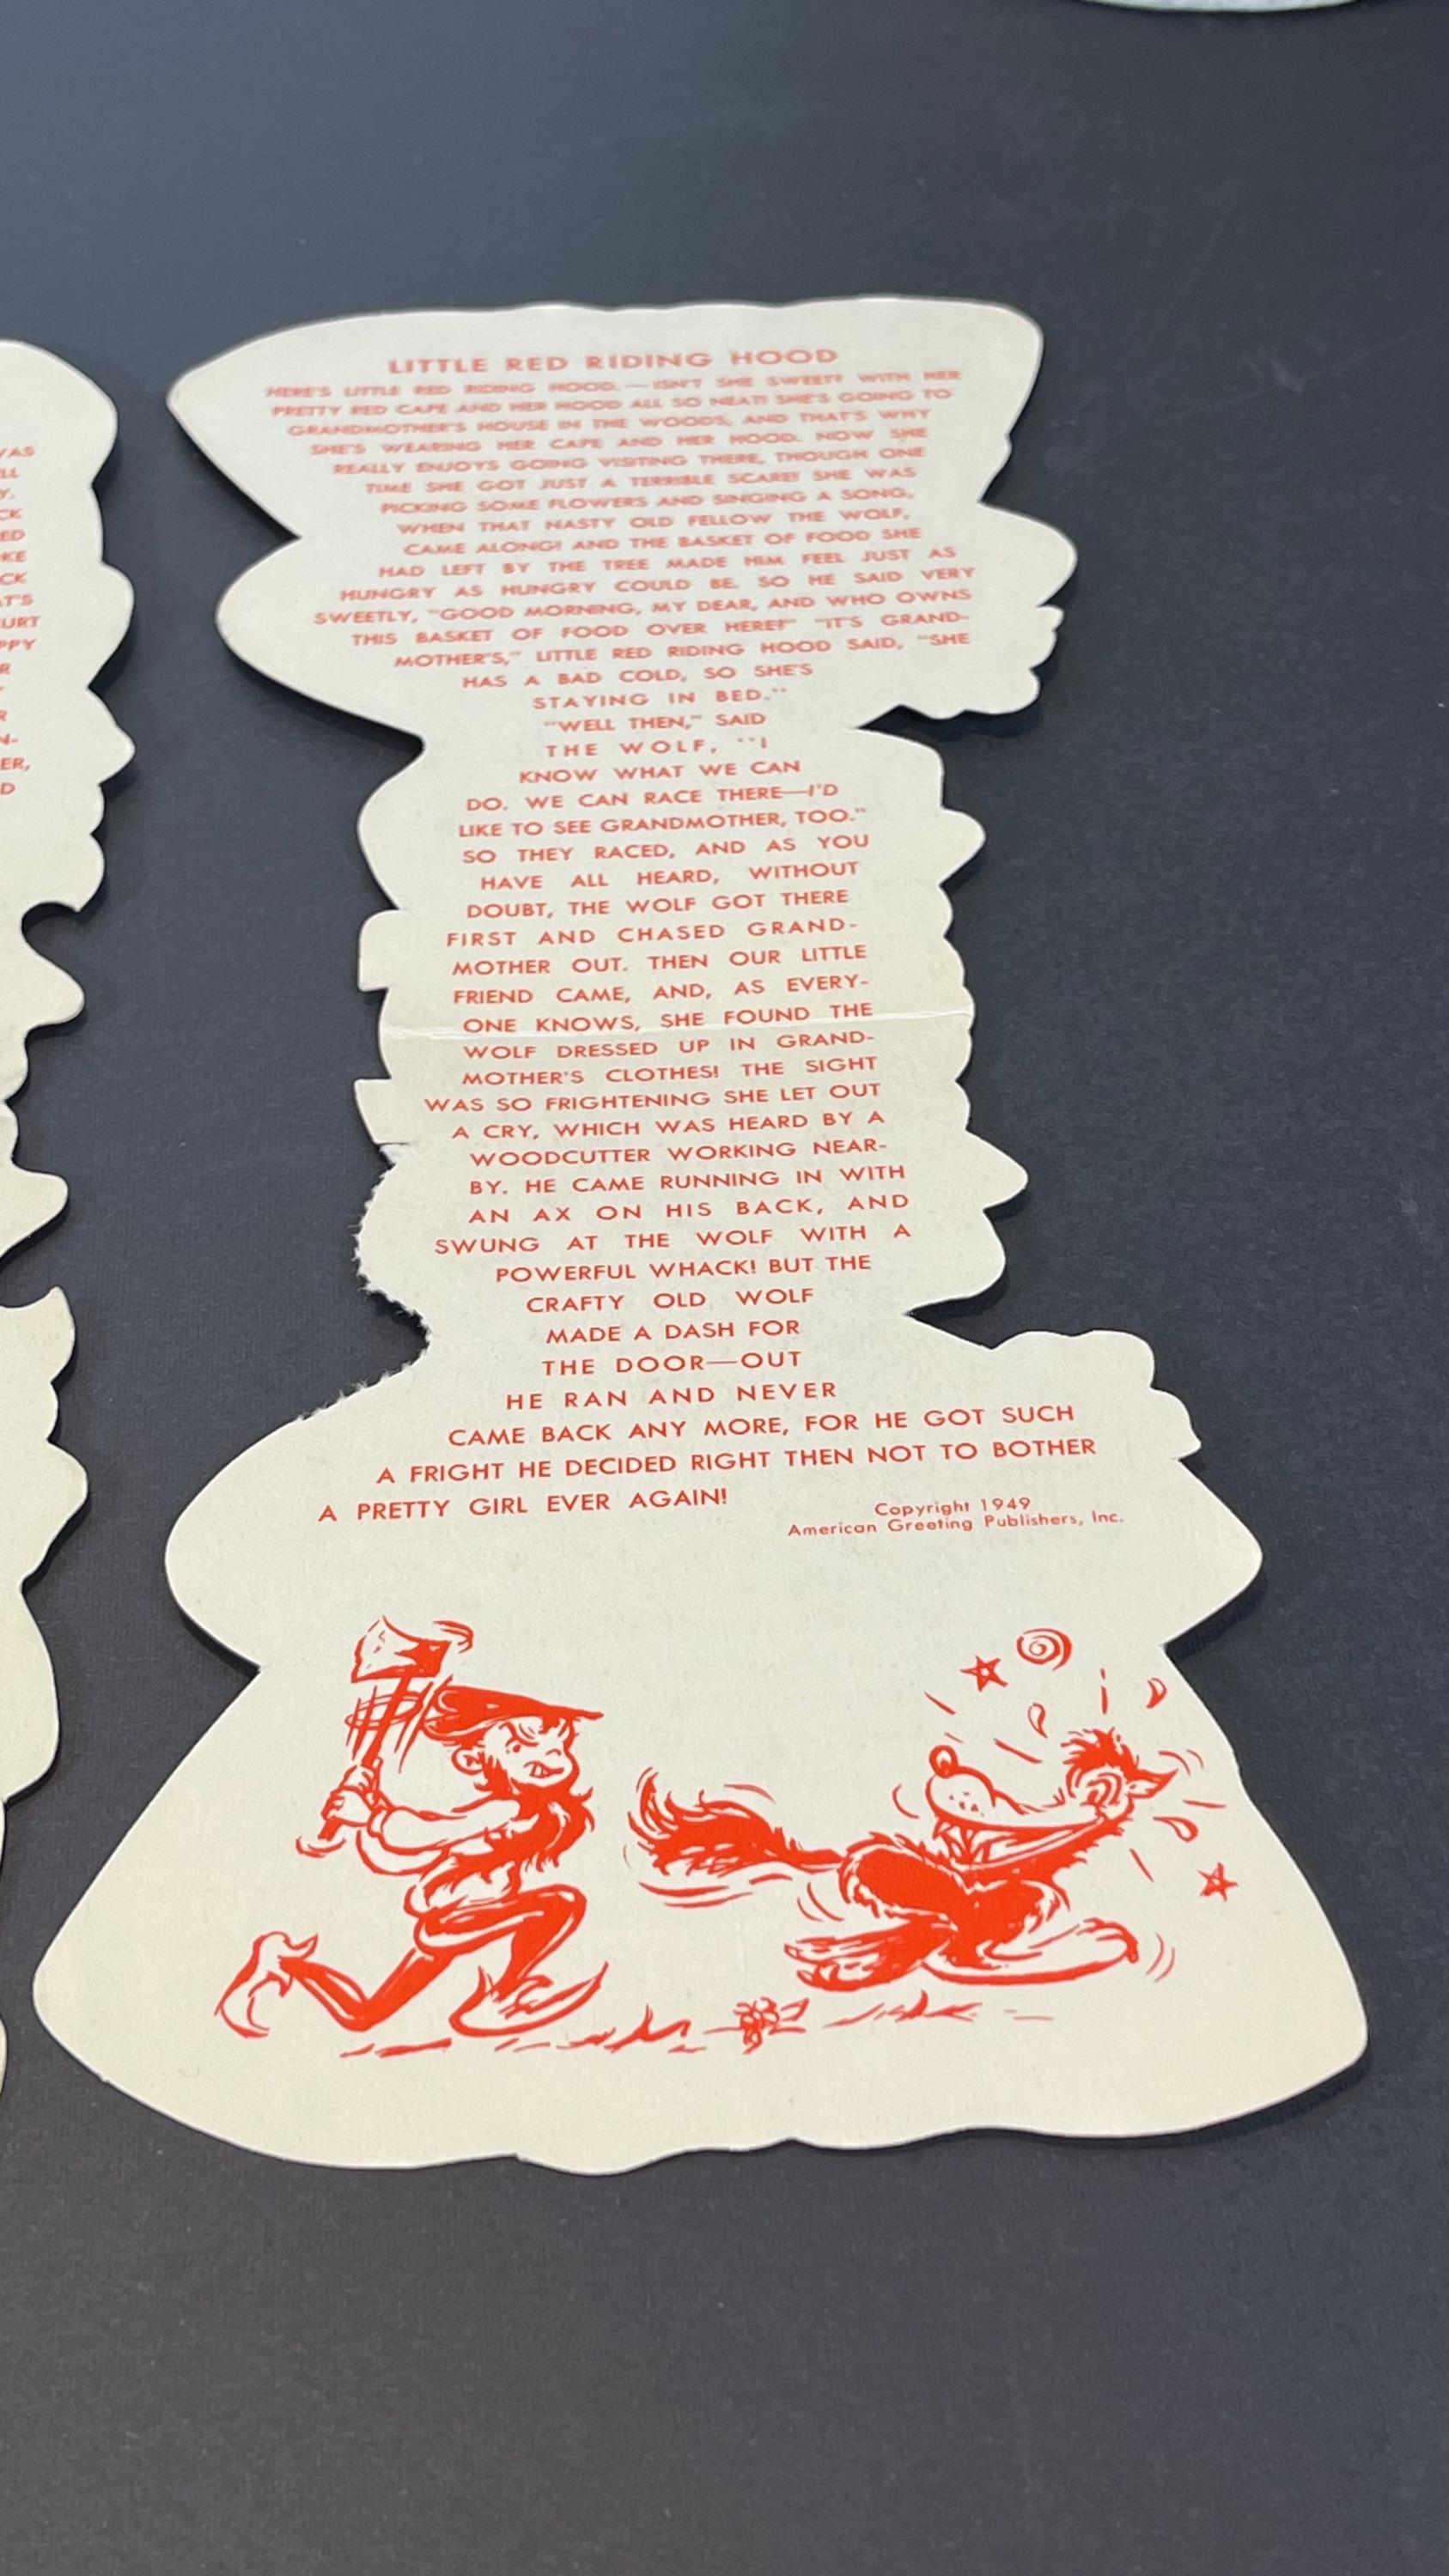 LITTLE RED RIDING HOOD
HERE'S LITTLE RED RIDING HOOD,—ISN'T SHE SWEET? WITH HER
PRETTY RED CAPE AND HER HOOD ALL SO NEAT! SHE'S GOING TO
GRANDMOTHER'S HOUSE IN THE WOODS, AND THAT'S WHY
SHE'S WEARING HER CAPE AND HER HOOD. NOW SHE
REALLY ENJOYS GOING VISITING THERE, THOUGH ONE
TIME SHE GOT JUST A TERRIBLE SCARE! SHE WAS
PICKING SOME FLOWERS AND SINGING A SONG,
WHEN THAT NASTY OLD FELLOW THE WOLF,
CAME ALONG! AND THE BASKET OF FOOD SHE
HAD LEFT BY THE TREE MADE HIM FEEL JUST AS
HUNGRY AS HUNGRY COULD BE. SO HE SAID VERY
SWEETLY, "GOOD MORNING, MY DEAR, AND WHO OWNS
THIS BASKET OF FOOD OVER HERE?" "IT'S GRAND-
MOTHER'S," LITTLE RED RIDING HOOD SAID, "SHE
HAS A BAD COLD, SO SHE'S
STAYING IN BED."
"WELL THEN," SAID
THE WOLF, "I
KNOW WHAT WE CAN
DO. WE CAN RACE THERE—I'D
LIKE TO SEE GRANDMOTHER, TOO."
SO THEY RACED, AND AS YOU
HAVE ALL HEARD, WITHOUT
DOUBT, THE WOLF GOT THERE
FIRST AND CHASED GRAND-
MOTHER OUT. THEN OUR LITTLE
FRIEND CAME, AND, AS EVERY-
ONE KNOWS, SHE FOUND THE
WOLF DRESSED UP IN GRAND-
MOTHER'S CLOTHES! THE SIGHT
WAS SO FRIGHTENING SHE LET OUT
A CRY, WHICH WAS HEARD BY A
WOODCUTTER WORKING NEAR-
BY. HE CAME RUNNING IN WITH
AN AX ON HIS BACK, AND
SWUNG AT THE WOLF WITH A
POWERFUL WHACK! BUT THE
CRAFTY OLD WOLF
MADE A DASH FOR
THE DOOR—OUT
HE RAN AND NEVER
CAME BACK ANY MORE, FOR HE GOT SUCH
A FRIGHT HE DECIDED RIGHT THEN NOT TO BOTHER
A PRETTY GIRL EVER AGAIN!
Copyright 1949
American Greeting Publishers, Inc.